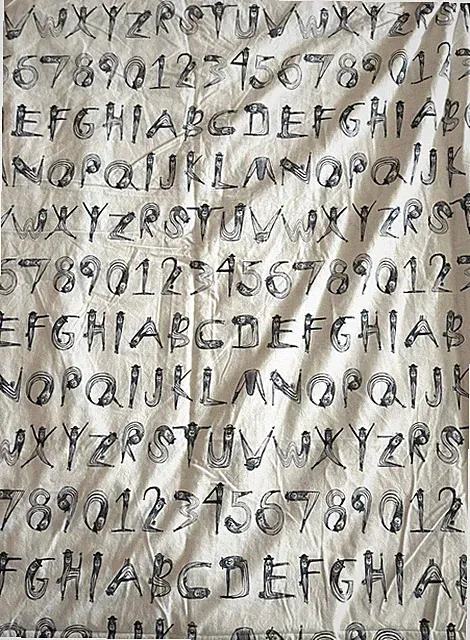 VWXYZRSTUVWXYZRS
567890123456789012
EFGHIABCDEFGHIAB
NOPQIJKLMNOPQIJK
VWXYZRSTUVWXYZRS
567890123456789012
EFGHIABCDEFGHIAB
NOPQIJKLMNOPQIJK
WXYZRSTUVWXYZRS
7890123456789012
FGHIABCDEFGHIA